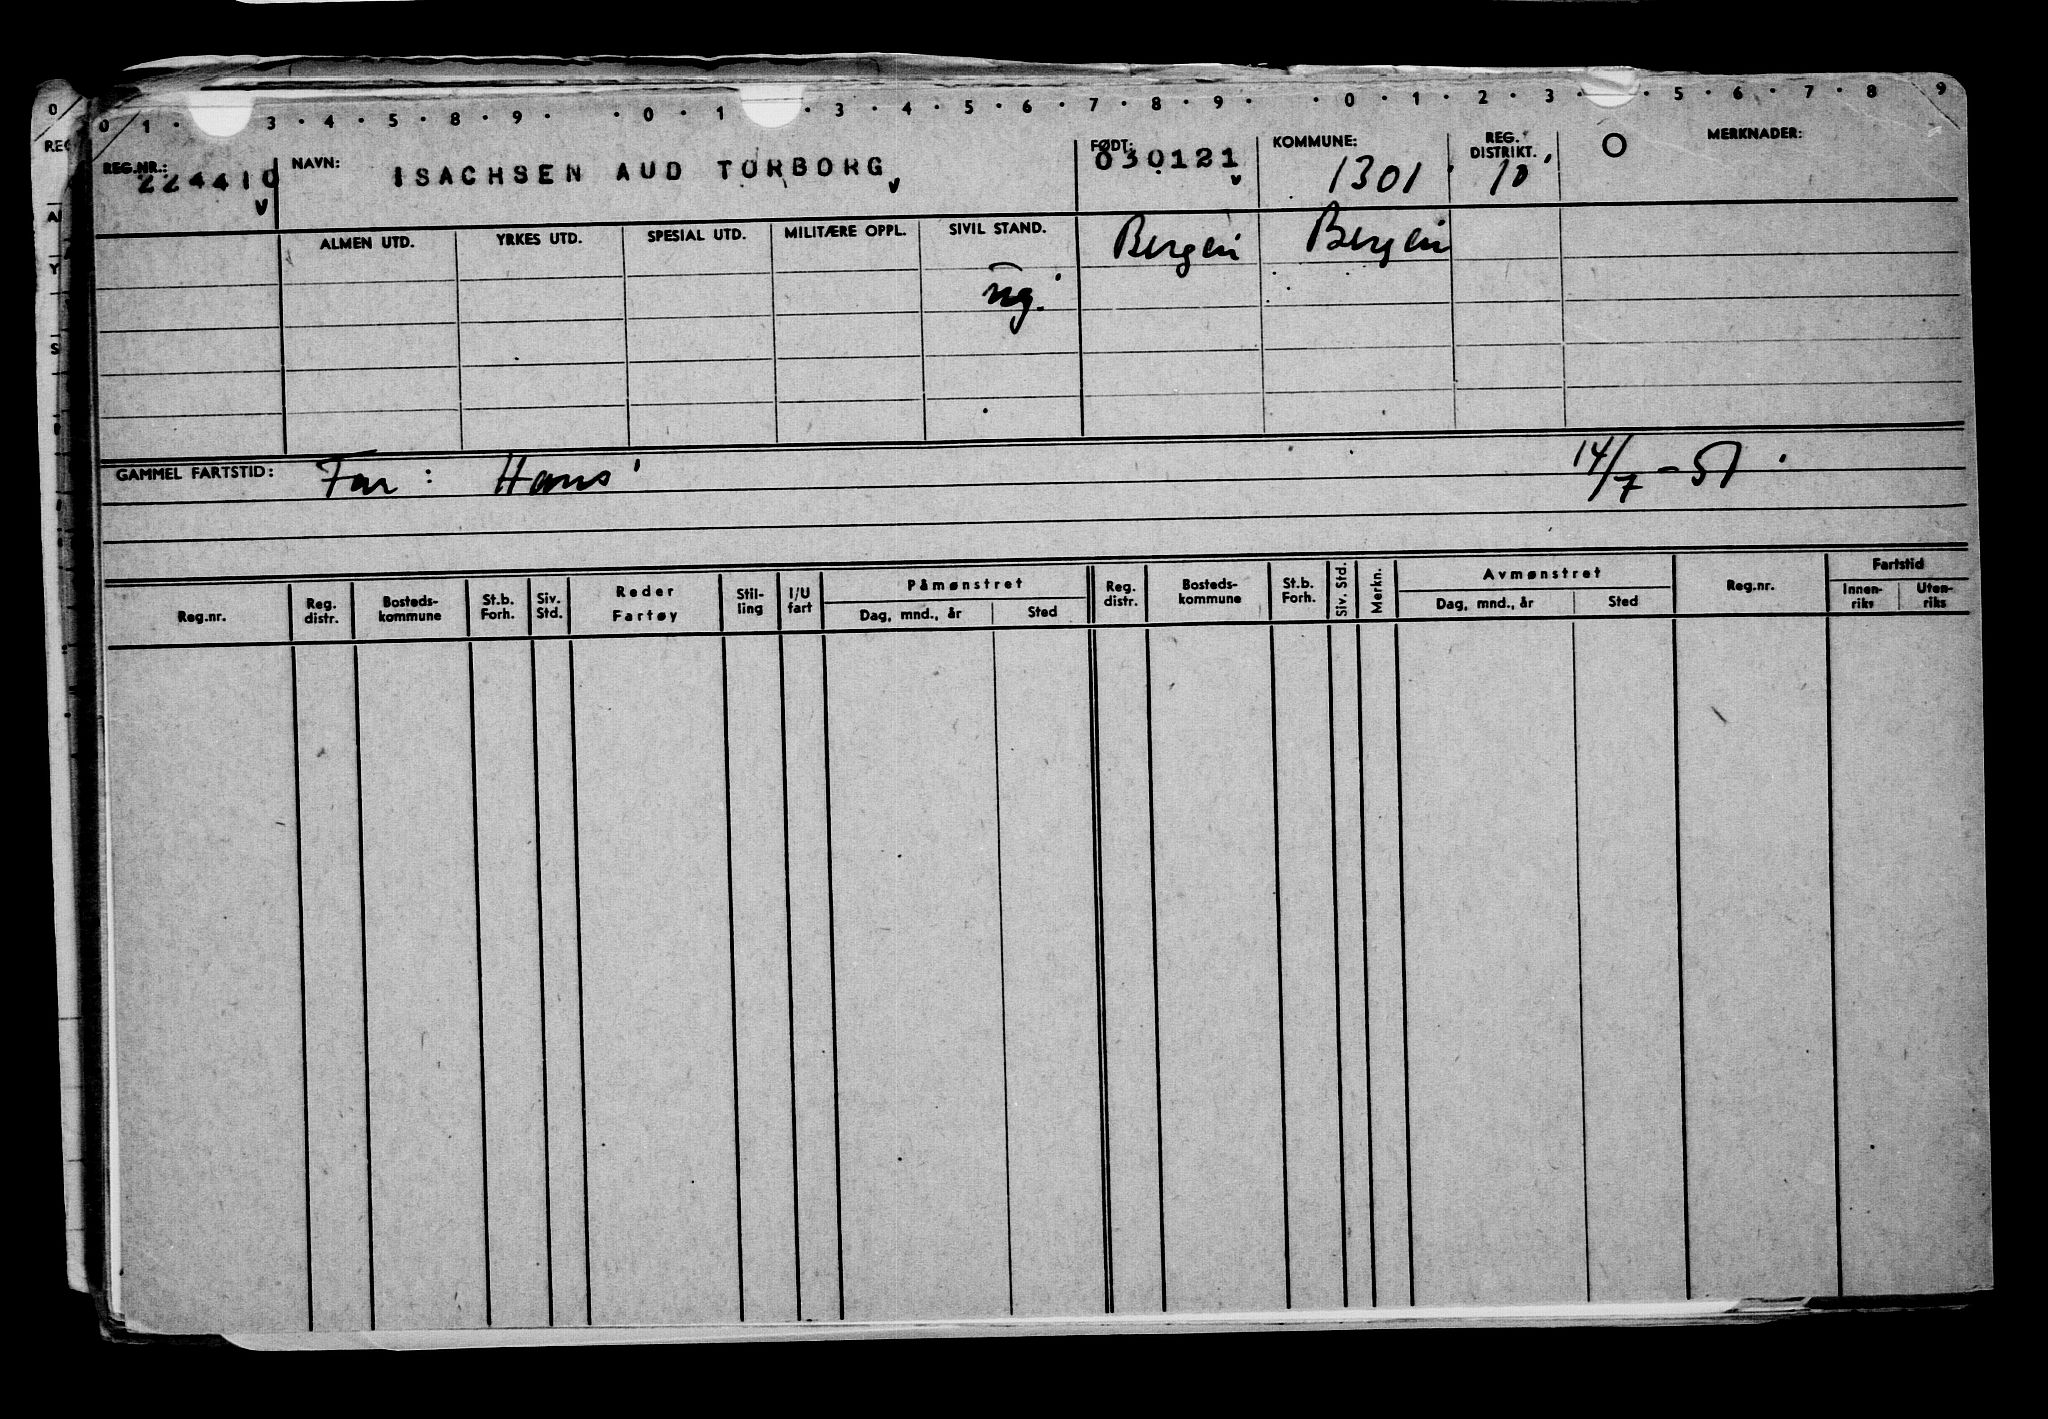 0 1 · 3 · 4 · 5 · 8 · 9 · · 0 · 1 · 3 · 4 · 5 · 6 · 7 · 8 · 9 · · 0 · 1 · 2 · 3 · · 5 · 6 · 7 · 8 9
REG.NR.: 224410 NAVN: ISACHSEN AUD TORBORG FØDT: 030121 KOMMUNE: 1301 REG. DISTRIKT. 10 MERKNADER:
ALMEN UTD. YRKES UTD. SPESIAL UTD. MILITÆRE OPPL. SIVIL STAND. Bergen Bergen
ug.
GAMMEL FARTSTID: Far: Hans 14/7-51.
Reg.nr. Reg. distr. Bosteds- kommune St.b. Forh. Siv. Std. Reder Fartøy Stil- ling I/U fart Påmønstret Dag, mnd., år Sted Reg. distr. Bosteds- kommune St.b. Forh. Siv. Std. Merkn. Avmønstret Dag, mnd., år Sted Reg.nr. Fartstid Innen- riks Uten- riks